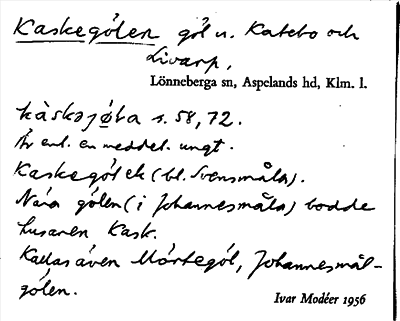 Kaskegölen göl u. Katebo och
Livarp,
Lönneberga sn, Aspelands hd, Klm. l.
s. 58, 72.
Är enl. en meddel. ungt.
Kaskegöl ek (bl. Svensmåla).
Nära gölen (i Johannesmåla) bodde
husaren Kask.
Kallas även Mörtegöl, Johannesmål-
gölen.
Ivar Modéer 1956